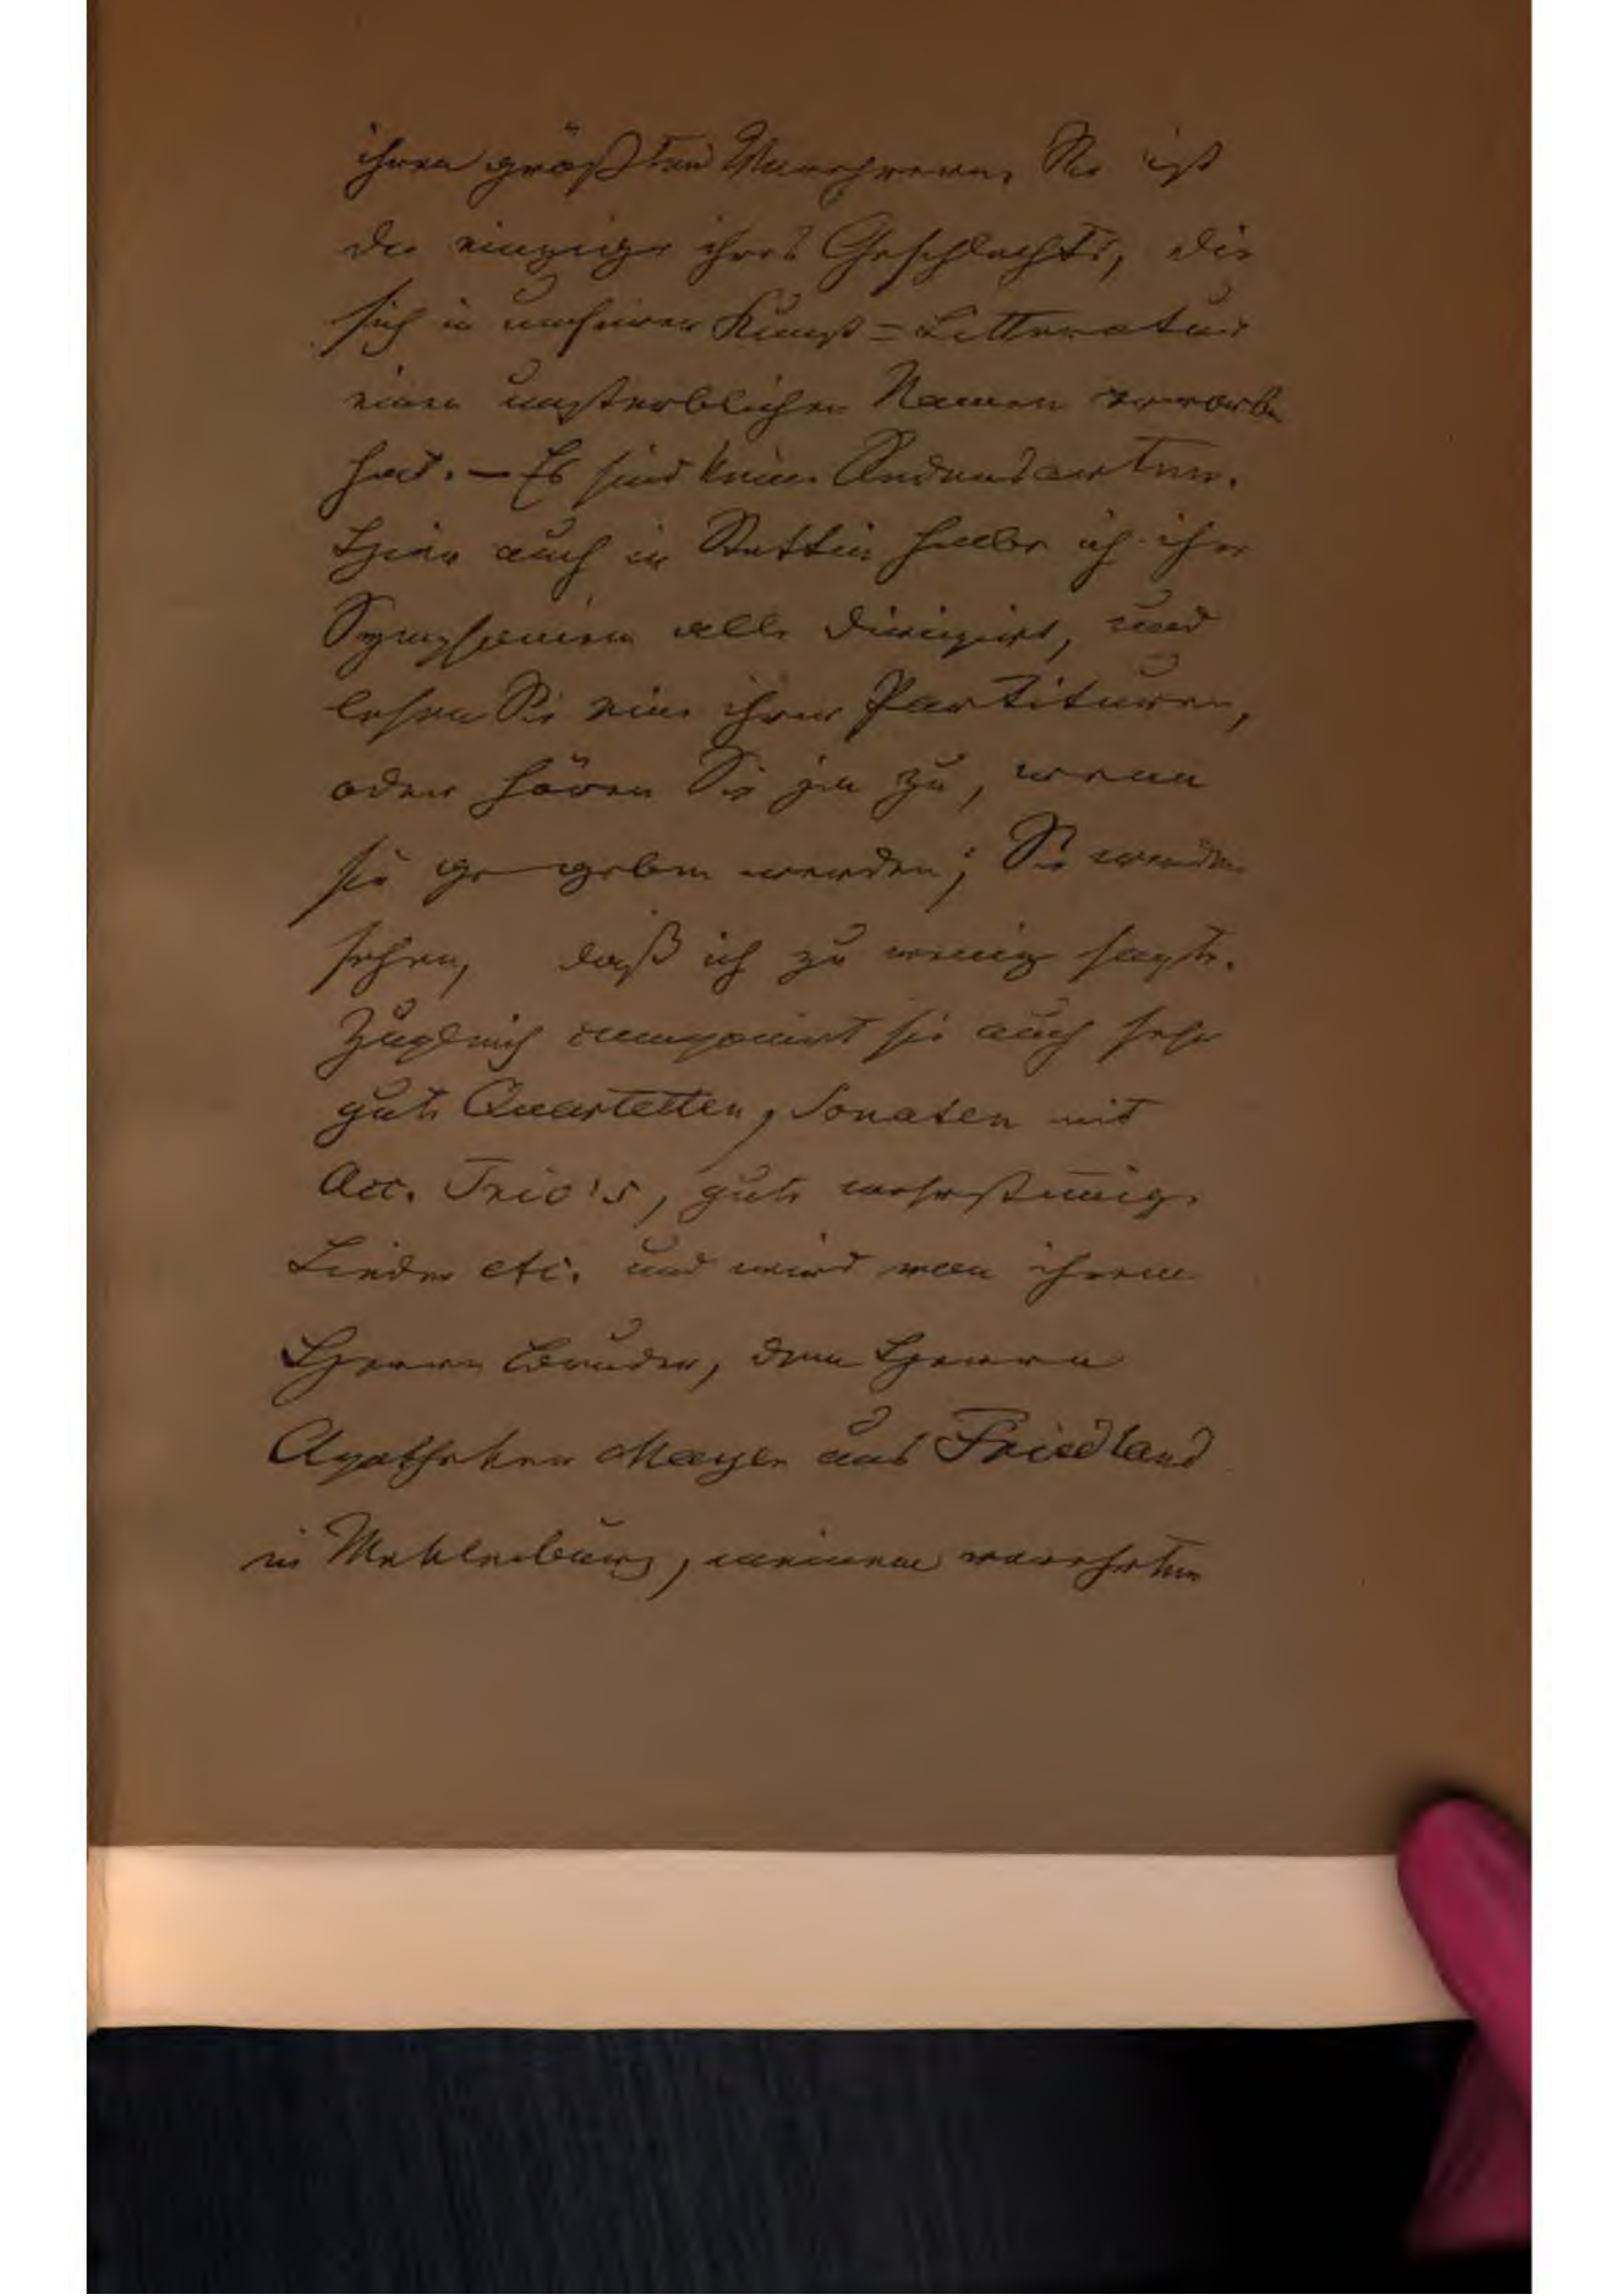 ihren größten Verehrern. Sie ist
die einzige ihres Geschlechts, die
sich in unserer Kunst=Litteratur
einen unsterblichen Namen erworben
hat. — Es sind keine Redensarten.
Hier auch in Stettin habe ich ihre
Symphonien alle dirigirt, und
lesen Sie eine ihrer Partituren,
oder hören Sie zu, wenn
sie gegeben werden; Sie werden
sehen, daß ich zu wenig sagte.
Zugleich componirt sie auch sehr
gute Quartetten, Sonaten mit
Acc. Trio's, gute mehrstimmige
Lieder etc. und wird von ihrem
Herrn Bruder, dem Herrn
Apotheker Mayer aus Friedland
in Meklenburg, meinem verehrten